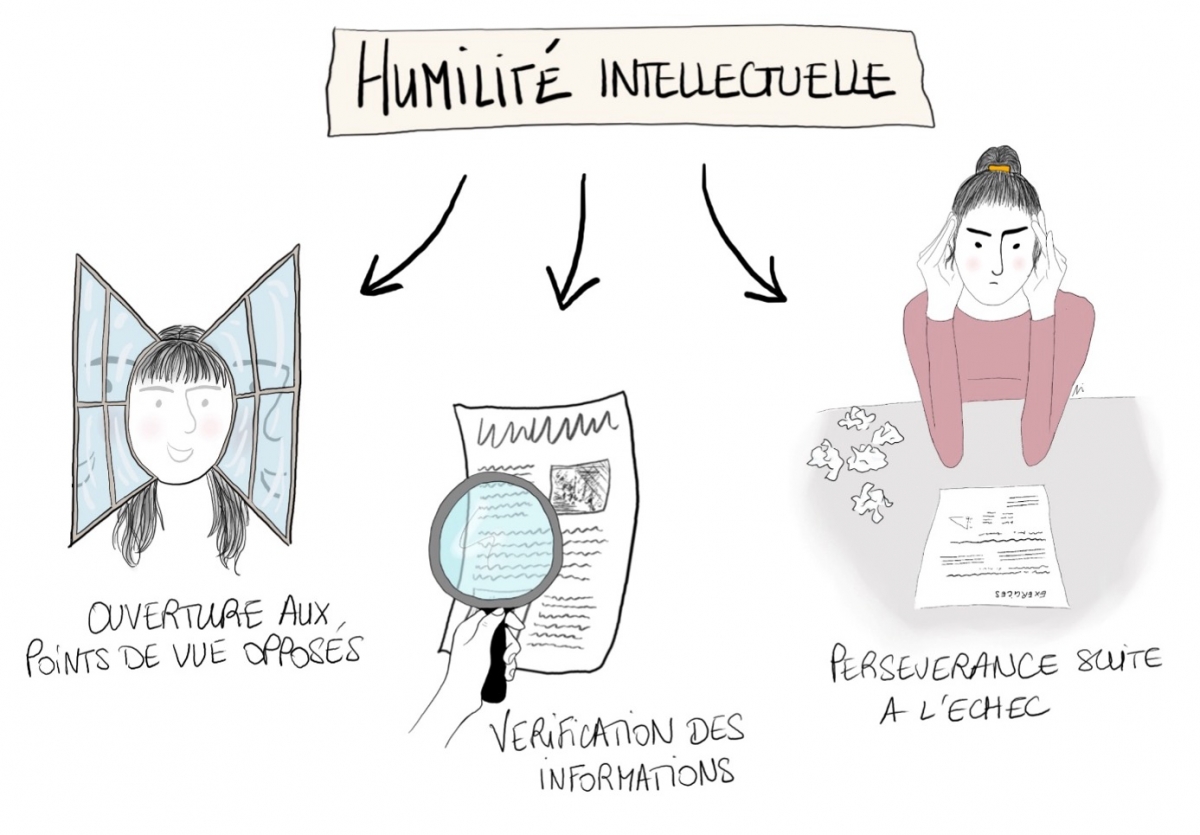 HUMILITÉ INTELLECTUELLE
OUVERTURE AUX
POINTS DE VUE OPPOSÉS
VERIFICATION DES
INFORMATIONS
PERSEVERANCE SUITE
A L'ECHEC
EXERCICES